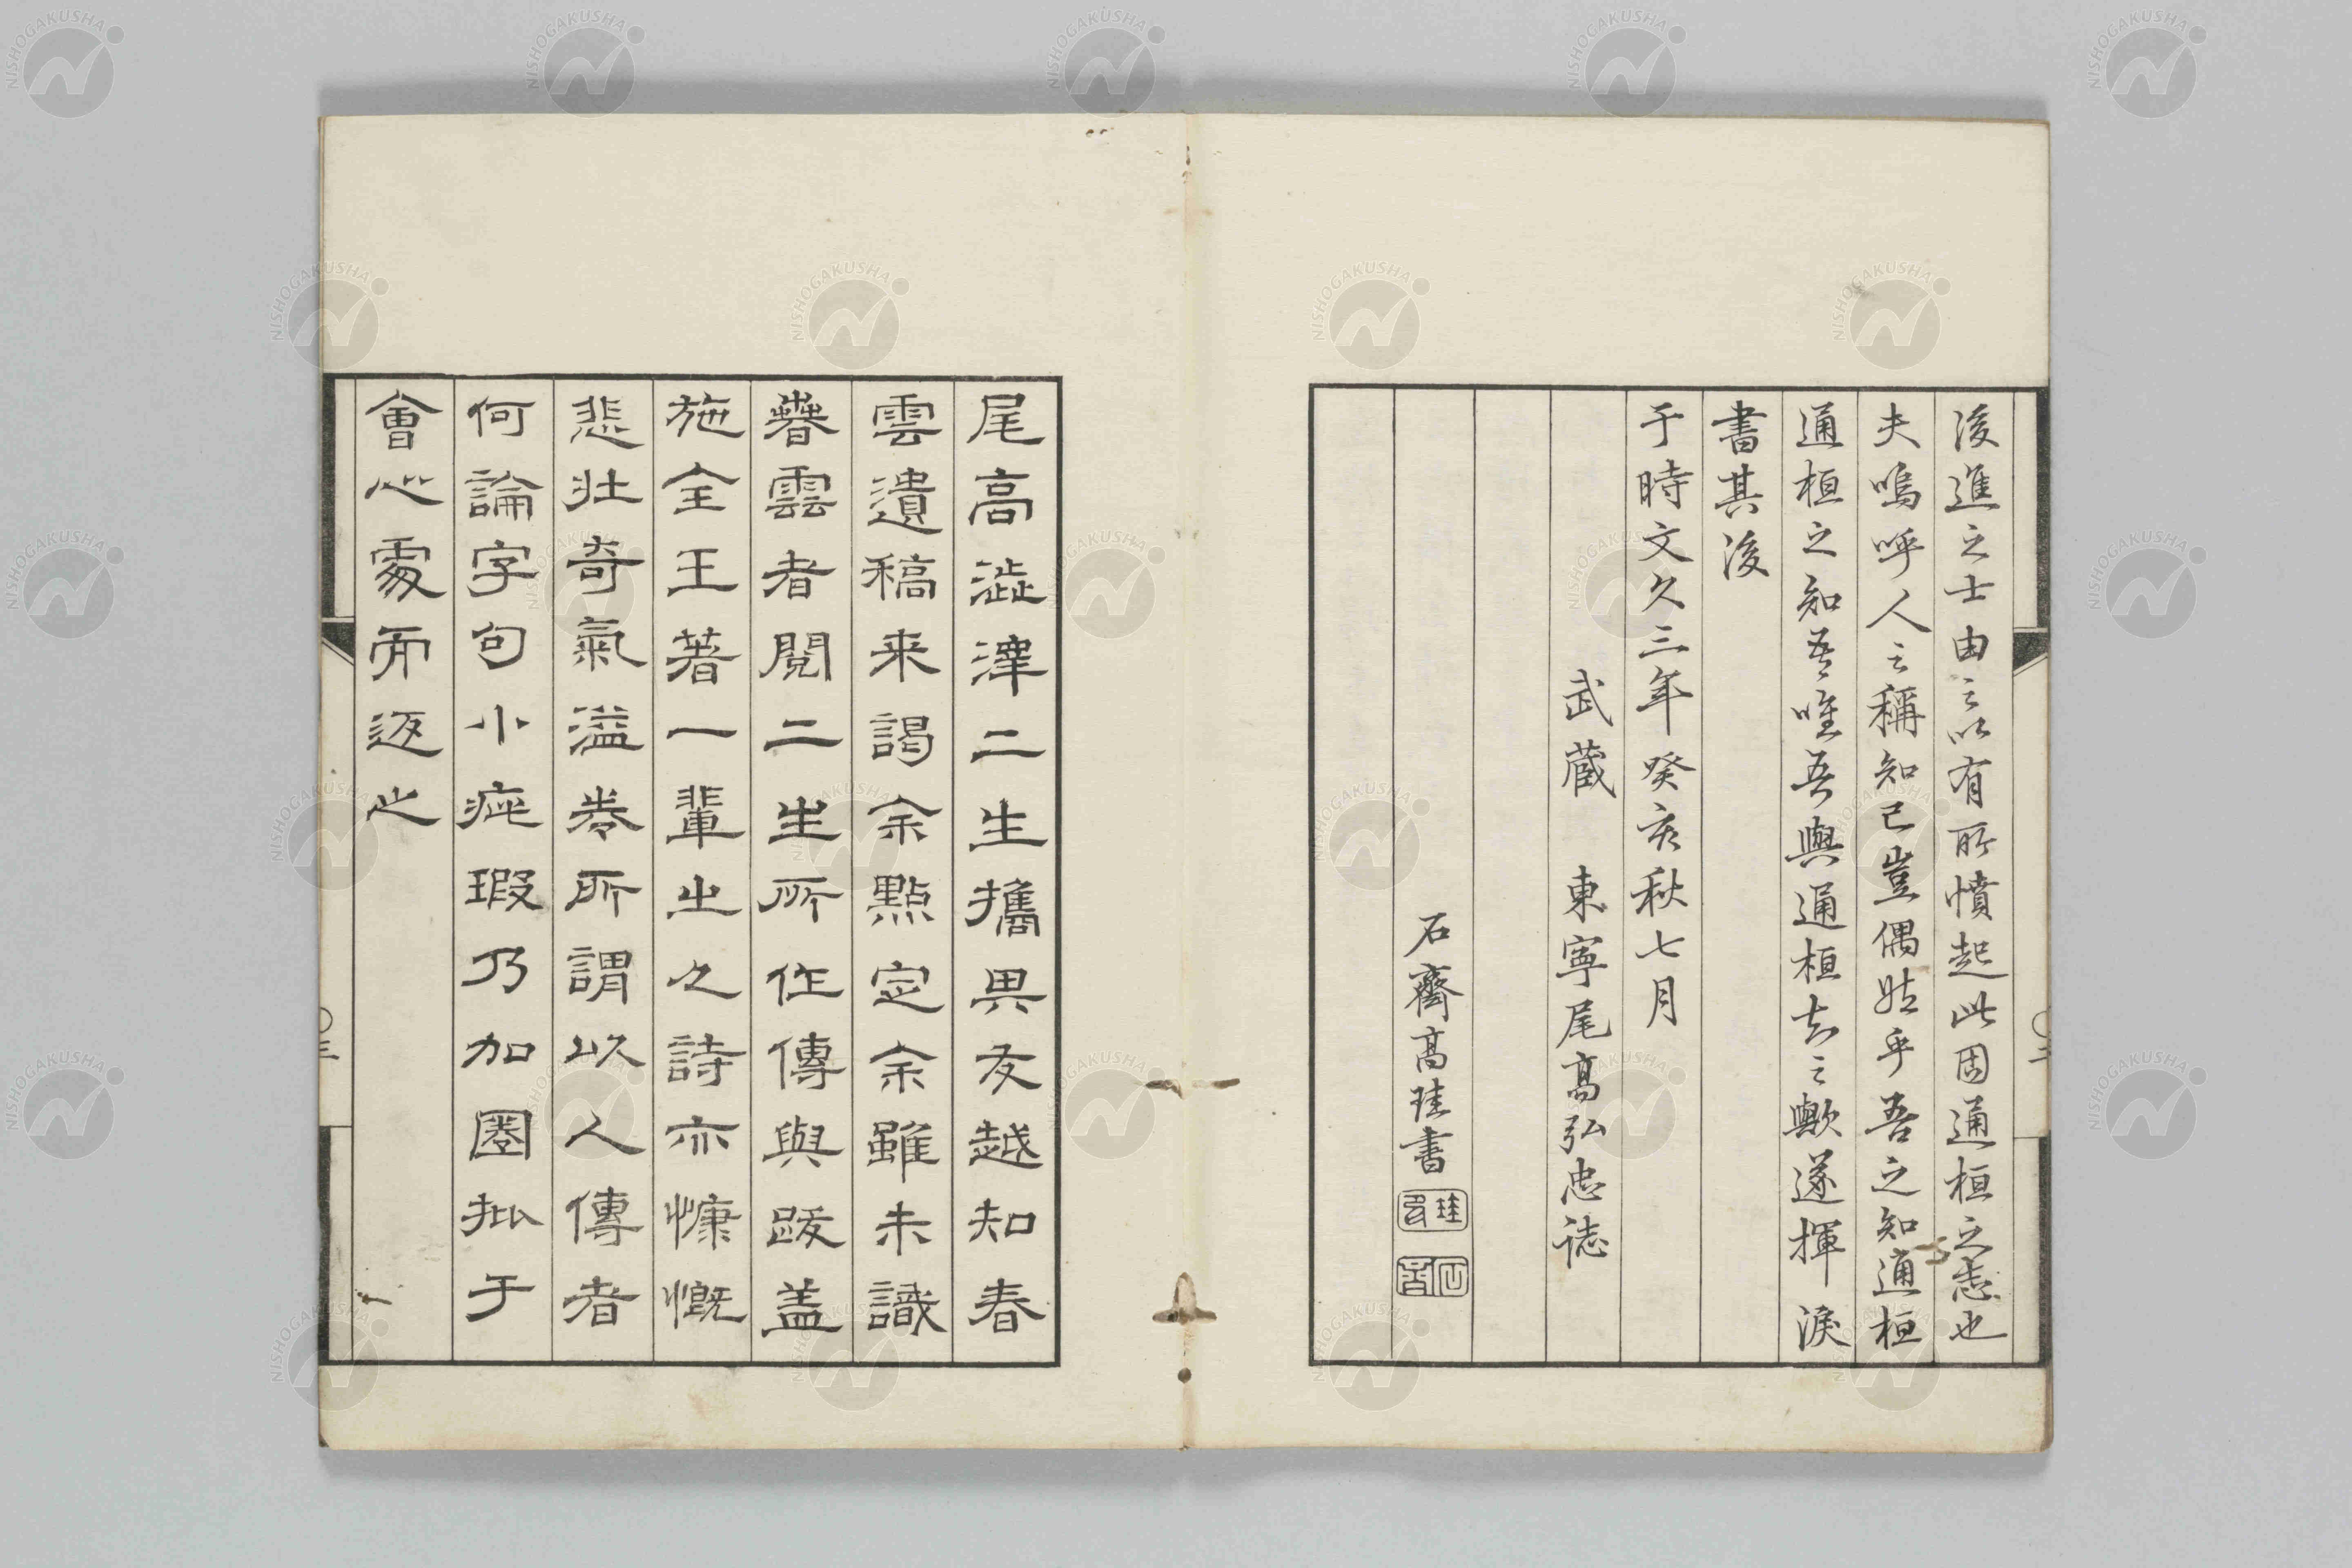 後進之士由之以有所憤起此固通桓之志也
夫嗚呼人之稱知己豈偶然乎吾之知通桓
通桓之知吾唯吾與通桓知之歟遂揮淚
書其後
于時文久三年癸亥秋七月
武藏 東寧尾高弘忠誌
石齋高珪書
尾高澁澤二生攜異友越知春
雲遺稿来謁余點定余雖未識
春雲者閱二生所作傳與跋盖
施全王著一輩之之詩亦慷慨
悲壮奇氣溢卷所謂以人傳者
何論字句小疵瑕乃加圈批于
會心處而返之